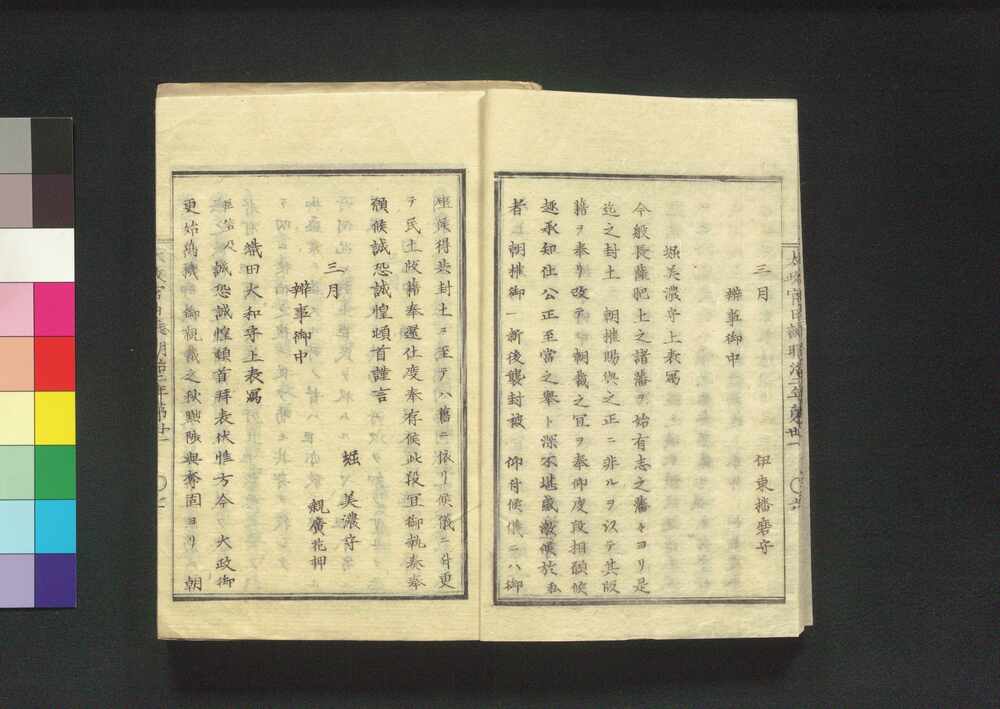 三月　　　　　　　　伊東播磨守
辨事御中
堀美濃守上表寫
今般長薩肥土之諸藩ヲ始有志之藩々ヨリ是
迄之封土　朝推賜與之正ニ非ルヲ以テ其版
籍ヲ奉リ改テ　朝裁之宜ヲ奉仰度段相願候
趣承知仕公正至當之擧ト深不堪感激候於私
者　朝推御一新後襲封被　仰付候儀ニハ御
座候得共封土ニ至テハ舊ニ依リ候儀ニ付更
テ民土版籍奉還仕度奉存候此段宜御執奏奉
願候誠恐誠惶頓首謹言
三月　　　　堀　美濃守
親廣花押
辨事御中
織田大和守上表寫
誠恐誠惶頓首拜表伏惟方今ノ大政御
更始萬機御親裁之秋興陟與奪固ヨリ　朝
太政官日誌明治二年第廿一